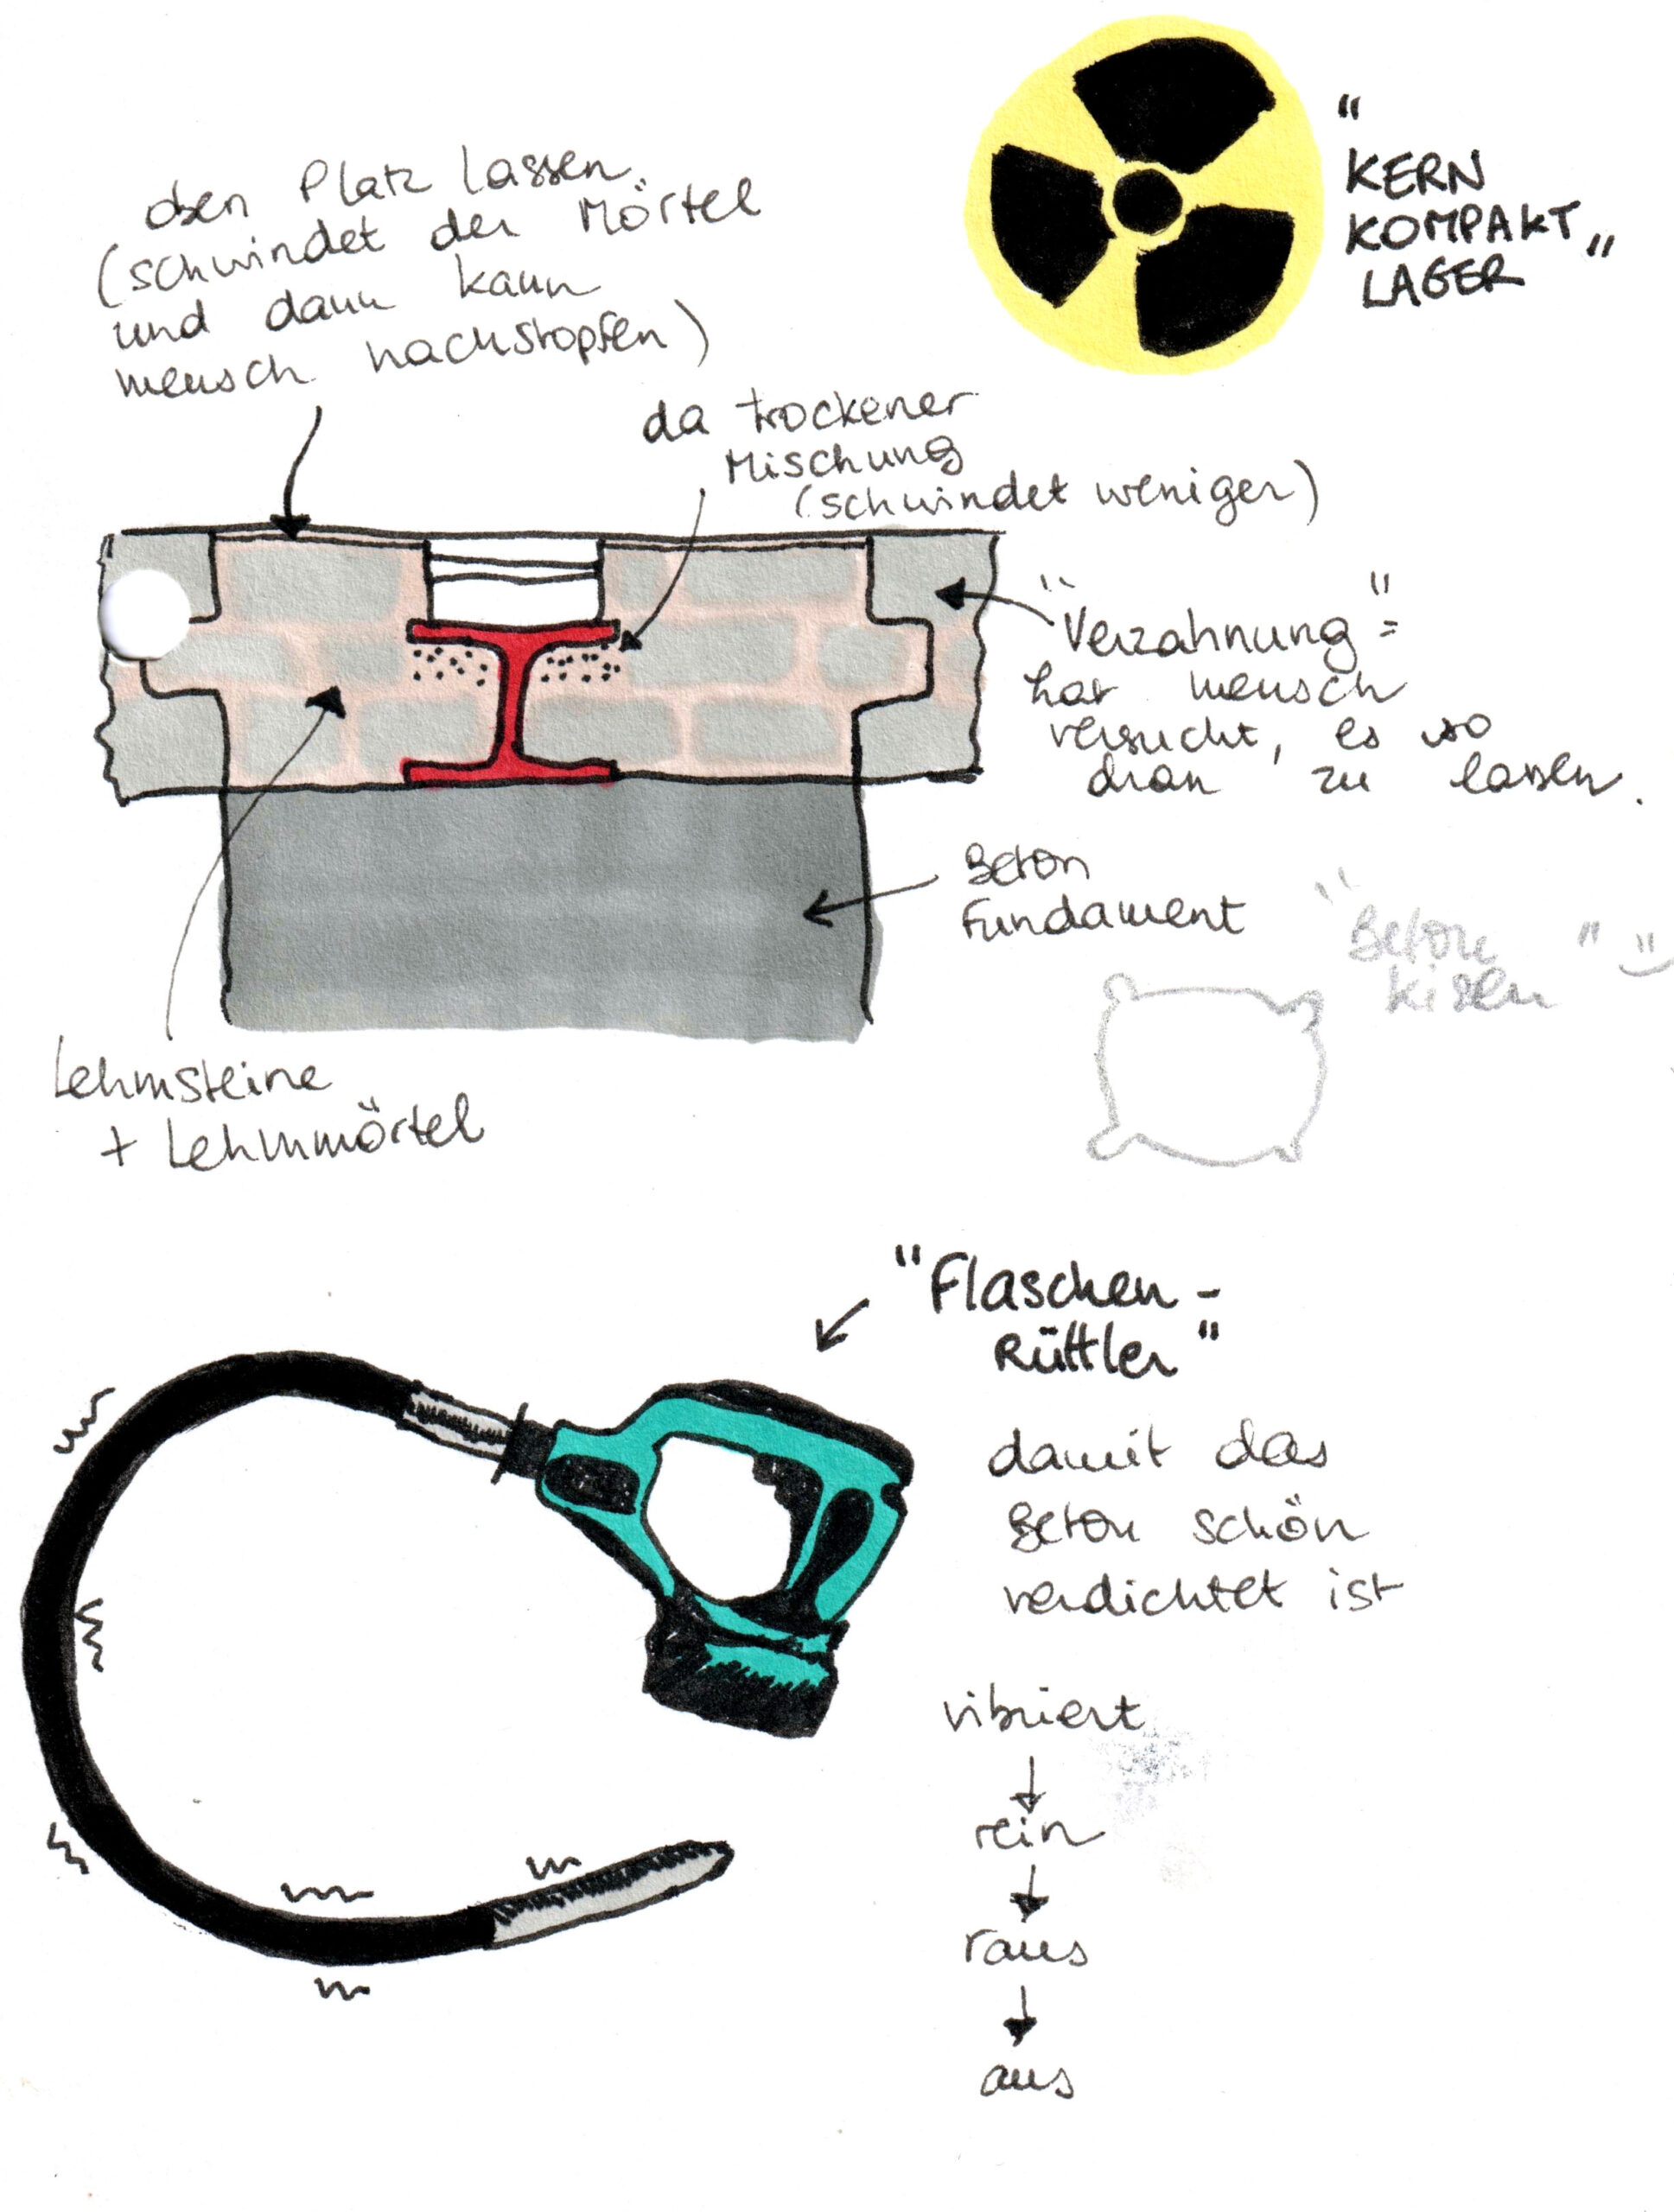 "
KERN
KOMPAKT
LAGER "
oben Platz lassen.
(schwindet der Mörtel
und dann kann
mensch nachstopfen)
da trockener
Mischung
(schwindet weniger)
"Verzahnung" =
hat mensch
versucht, es so
dran zu lassen.
Beton
Fundament
"Beton
kissen"
Lehmsteine
+ Lehmmörtel
"Flaschen-
Rüttler"
damit das
Beton schön
verdichtet ist
vibriert
rein
raus
aus